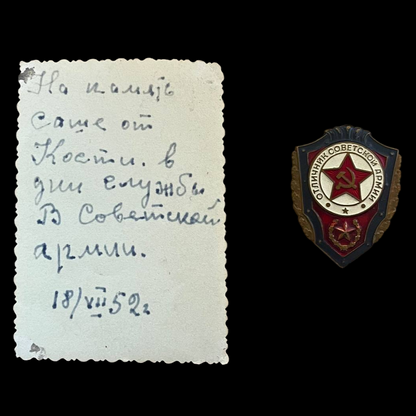 На память
саше от
Кости. в
дни службы
В Советской
армии.
18/VII 52г
ОТЛИЧНИК СОВЕТСКОЙ АРМИИ